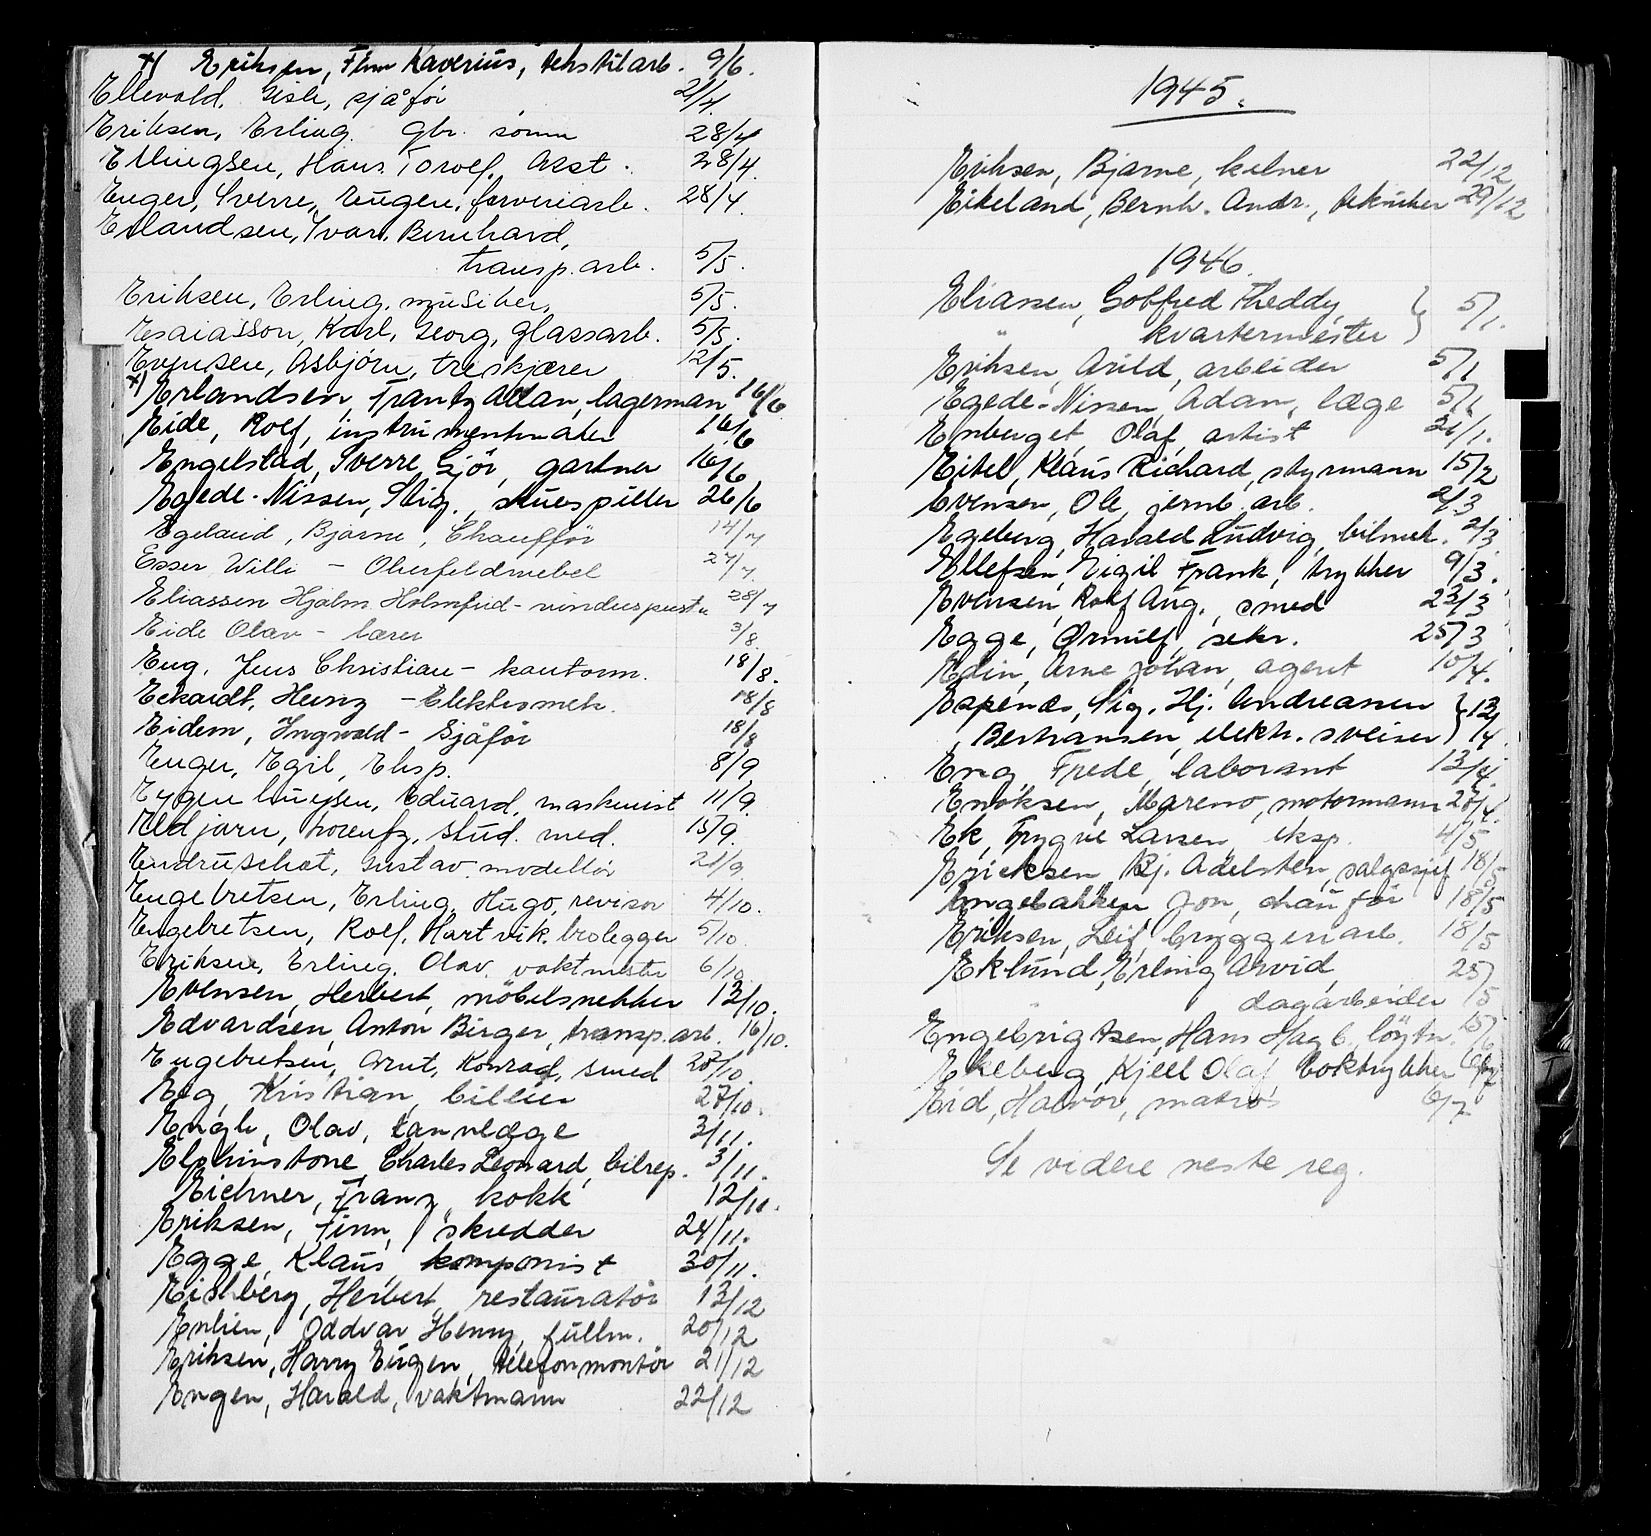 x) Eriksen, Finn Xaverius, tekstilarb. 9/6.
Ellevold, Gisle, sjåfør 21/4.
Eriksen, Erling. gbr. sønn 28/4
Ellingsen, Hans Torolf. Asst. 28/4.
Enger, Sverre, Eugen. farveriarb. 28/4.
Erlandsen, Ivar. Bernhard,
transp. arb. 5/5.
Eriksen, Erling. musiker, 5/5.
Esaiasson, Karl, Georg, glassarb. 5/5.
Evensen, Asbjörn, treskjærer 12/5.
x) Erlandsen, Frantz Allan, lagerman, 16/6
Eide, Rolf, instrumentmaker 16/6
Engelstad, Sverre Gjör, gartner 16/6
Egede-Nissen, Stig., skuespiller 26/6
Egeland, Bjarne, Chaufför 14/7
Esser Willi - Oberfeldwebel 27/7.
Eliassen Hjalm. Holmfrid - vinduspuss. 28/7
Eide Olav - lærer 3/8.
Eng, Jens Christian - kontorm. 18/8.
Eckardt, Heinz - Elektromek. 18/8
Eidem, Ingvald - Sjåför 18/8
Enger, Egil, Eksp. 8/9
Eduard, maskinist 11/9.
Eldjarn, Lorentz, stud. med. 15/9.
Endruschat, Gustav. modellör 21/9.
Engebretsen, Erling, Hugo, revisor 4/10.
Engebretsen, Rolf, Hartvik. brolegger 5/10.
Eriksen, Erling. Olav. vaktmester 6/10.
Evensen, Herbert, möbelsnekker 13/10.
Edvardsen, Anton Birger, transp. arb. 16/10.
Engebretsen, Arnt, Konrad, smed 20/10.
Eeg, Kristian, billier 27/10.
Engh, Olav, tannlæge 3/11.
Elphinstone, Charles Leonard, bilrep. 3/11.
Eichner, Franz, kokk 12/11.
Eriksen, Finn, skredder 24/11.
Egge, Klaus, komponist 30/11.
Eichberg, Herbert, restauratör 13/12
Enlien, Oddvar Henry, fullm. 20/12
Eriksen, Harry Eugen, telefonmontör 21/12
Engen, Harald, vaktmann 22/12
1945.
Eriksen, Bjarne, kelner 22/12
Eikeland, Bernh. Andr., tekniker 29/12
1946.
Eliassen, Gotfred Theddy,
" kvartermester } 5/1.
Eriksen, Arild, arbeider 5/1
Egede-Nissen, Adam, læge 5/1
Enberget, Olaf, artist 21/1.
Eitel, Klaus Richard, styrmann 15/2
Evensen, Ole, jernb. arb. 2/3
Egeberg, Harald Ludvig, bilmek. 2/3
Ellefsen, Eigil Frank, trykker 9/3.
Evensen, Rolf Aug., smed 23/3
Egge, Örnulf, sekr. 25/3
Edin, Arne Johan, agent 10/4.
Espenæs, Sig. Hj. Andreassen
Bertransen, elektr. sveiser } 13/4
Eng, Frede, laborant 13/4.
Enoksen, Mareno, motormann 26/4.
Ek, Trygve Larsen, eksp. 4/5
Ericksen, Bj. Adelsten, salgssjef 18/5
Engebakken, Jon, chauför 18/5
Eriksen, Leif, bryggeriarb. 18/5
Eklund, Erling Arvid,
" dagarbeider 25/5
Engebrigtsen, Hans Hagb. löytn. 15/6
Ekeberg, Kjell Olaf, boktrykker 6/7
Eid, Halvor, matros 6/7
Se videre neste reg.